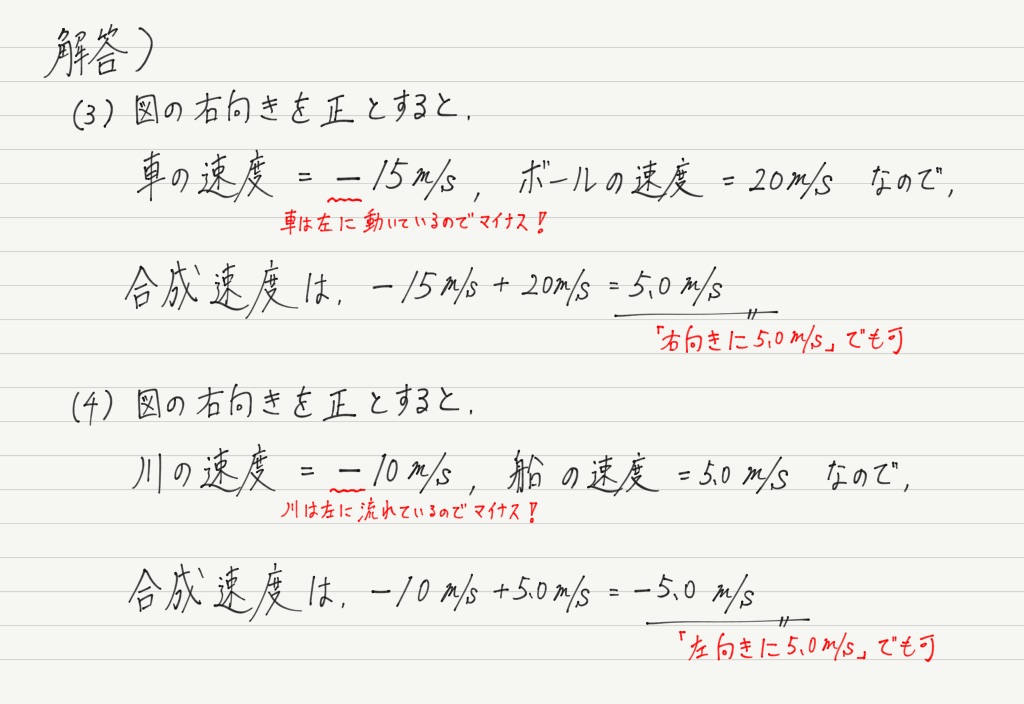 解答)
(3) 図の右向きを正とすると.
車の速度 = -15m/s, ボールの速度 = 20m/s なので,
車は左に動いているのでマイナス!
合成速度は. -15m/s + 20m/s = 5.0 m/s
「右向きに5.0m/s」でも可
(4) 図の右向きを正とすると.
川の速度 = -10m/s, 船の速度 = 5.0 m/s なので,
川は左に流れているのでマイナス!
合成速度は. -10 m/s + 5.0 m/s = -5.0 m/s
「左向きに5.0m/s」でも可